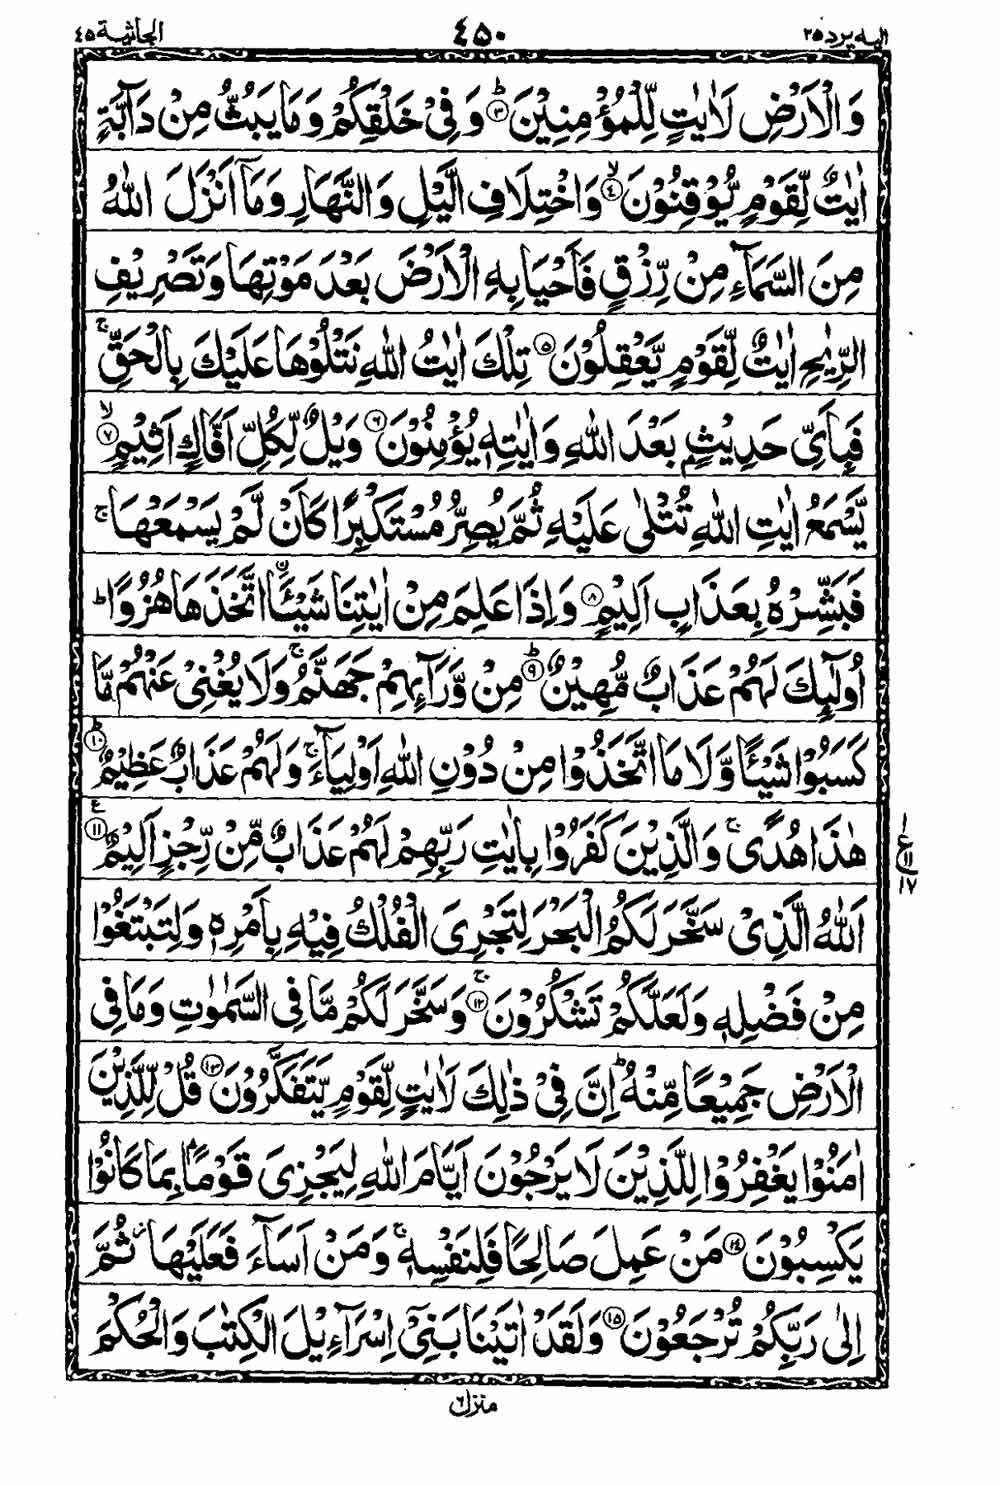 الیه یرد ۲۵ ۴۵۰ الجاثیة ۴۵
وَالْاَرْضِ لَاٰیٰتٍ لِّلْمُؤْمِنِیْنَ ؕ﴿۳﴾ وَ فِیْ خَلْقِكُمْ وَ مَا یَبُثُّ مِنْ دَآبَّةٍ
اٰیٰتٌ لِّقَوْمٍ یُّوْقِنُوْنَ ۙ﴿۴﴾ وَ اخْتِلَافِ الَّیْلِ وَ النَّهَارِ وَ مَاۤ اَنْزَلَ اللّٰهُ
مِنَ السَّمَآءِ مِنْ رِّزْقٍ فَاَحْیَا بِهِ الْاَرْضَ بَعْدَ مَوْتِهَا وَ تَصْرِیْفِ
الرِّیٰحِ اٰیٰتٌ لِّقَوْمٍ یَّعْقِلُوْنَ ﴿۵﴾ تِلْكَ اٰیٰتُ اللّٰهِ نَتْلُوْهَا عَلَیْكَ بِالْحَقِّ ۚ
فَبِاَیِّ حَدِیْثٍۭ بَعْدَ اللّٰهِ وَ اٰیٰتِهٖ یُؤْمِنُوْنَ ﴿۶﴾ وَیْلٌ لِّكُلِّ اَفَّاكٍ اَثِیْمٍ ۙ﴿۷﴾
یَّسْمَعُ اٰیٰتِ اللّٰهِ تُتْلٰی عَلَیْهِ ثُمَّ یُصِرُّ مُسْتَكْبِرًا كَاَنْ لَّمْ یَسْمَعْهَا ۚ
فَبَشِّرْهُ بِعَذَابٍ اَلِیْمٍ ﴿۸﴾ وَ اِذَا عَلِمَ مِنْ اٰیٰتِنَا شَیْـَٔاۨ اتَّخَذَهَا هُزُوًا ؕ
اُولٰٓىِٕكَ لَهُمْ عَذَابٌ مُّهِیْنٌ ؕ﴿۹﴾ مِنْ وَّرَآىِٕهِمْ جَهَنَّمُ ۚ وَ لَا یُغْنِیْ عَنْهُمْ مَّا
كَسَبُوْا شَیْـًٔا وَّ لَا مَا اتَّخَذُوْا مِنْ دُوْنِ اللّٰهِ اَوْلِیَآءَ ۚ وَ لَهُمْ عَذَابٌ عَظِیْمٌ ؕ﴿۱۰﴾
هٰذَا هُدًی ۚ وَ الَّذِیْنَ كَفَرُوْا بِاٰیٰتِ رَبِّهِمْ لَهُمْ عَذَابٌ مِّنْ رِّجْزٍ اَلِیْمٌ ﴿۱۱﴾ ع
اَللّٰهُ الَّذِیْ سَخَّرَ لَكُمُ الْبَحْرَ لِتَجْرِیَ الْفُلْكُ فِیْهِ بِاَمْرِهٖ وَ لِتَبْتَغُوْا
مِنْ فَضْلِهٖ وَ لَعَلَّكُمْ تَشْكُرُوْنَ ۚ﴿۱۲﴾ وَ سَخَّرَ لَكُمْ مَّا فِی السَّمٰوٰتِ وَ مَا فِی
الْاَرْضِ جَمِیْعًا مِّنْهُ ؕ اِنَّ فِیْ ذٰلِكَ لَاٰیٰتٍ لِّقَوْمٍ یَّتَفَكَّرُوْنَ ﴿۱۳﴾ قُلْ لِّلَّذِیْنَ
اٰمَنُوْا یَغْفِرُوْا لِلَّذِیْنَ لَا یَرْجُوْنَ اَیَّامَ اللّٰهِ لِیَجْزِیَ قَوْمًۢا بِمَا كَانُوْا
یَكْسِبُوْنَ ﴿۱۴﴾ مَنْ عَمِلَ صَالِحًا فَلِنَفْسِهٖ ۚ وَ مَنْ اَسَآءَ فَعَلَیْهَا ؗ ثُمَّ
اِلٰی رَبِّكُمْ تُرْجَعُوْنَ ﴿۱۵﴾ وَ لَقَدْ اٰتَیْنَا بَنِیْۤ اِسْرَآءِیْلَ الْكِتٰبَ وَ الْحُكْمَ
منزل ۶
۱ ع ۱۱ ۱۷